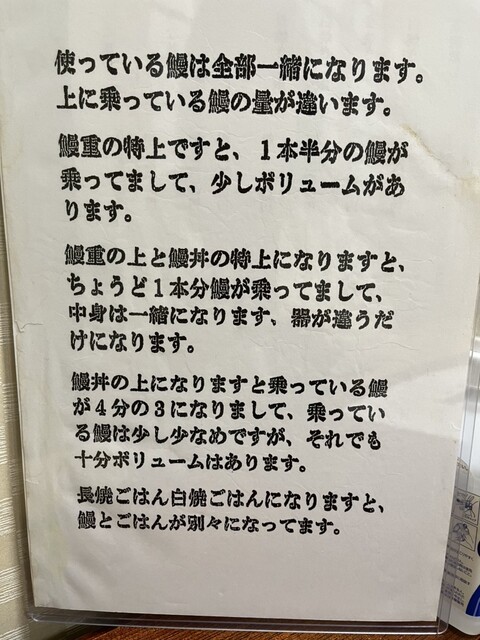 使っている鰻は全部一緒になります。
上に乗っている鰻の量が違います。
鰻重の特上ですと、１本半分の鰻が
乗ってまして、少しボリュームがあ
ります。
鰻重の上と鰻丼の特上になりますと、
ちょうど１本分鰻が乗ってまして、
中身は一緒になります、器が違うだ
けになります。
鰻丼の上になりますと乗っている鰻
が４分の３になりまして、乗ってい
る鰻は少し少なめですが、それでも
十分ボリュームはあります。
長焼ごはん白焼ごはんになりますと、
鰻とごはんが別々になってます。